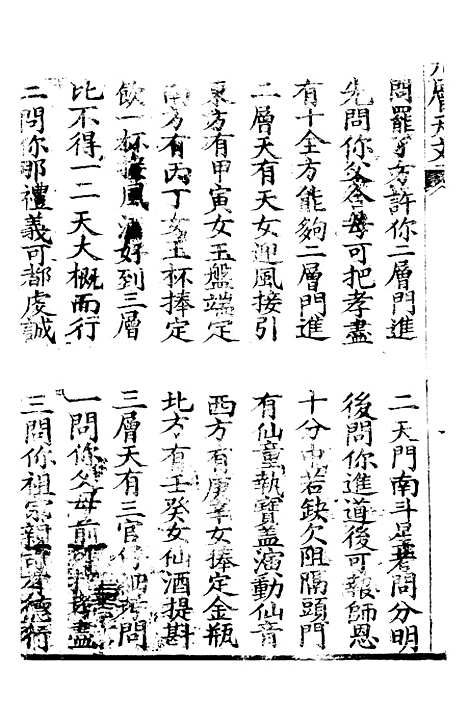 九層天文
問罷了方許你二層門進　二天門南斗星君問分明
先問你父合母可把孝盡　後問你進道後可報師恩
有十全方能夠二層門進　十分中若缺欠阻隔頭門
二層天有天女迎風接引　有仙童執寶蓋演動仙音
東方有甲寅女玉盤端定　西方有庚辛女捧定金瓶
南方有丙丁女玉杯捧定　北方有壬癸女仙酒提斟
飲一杯接風酒好到三層　三層天有三官
問
比不得一二天大概而行　一問你父母前
盡
二問你那禮義可都虔誠　三問你祖宗親可孝德行